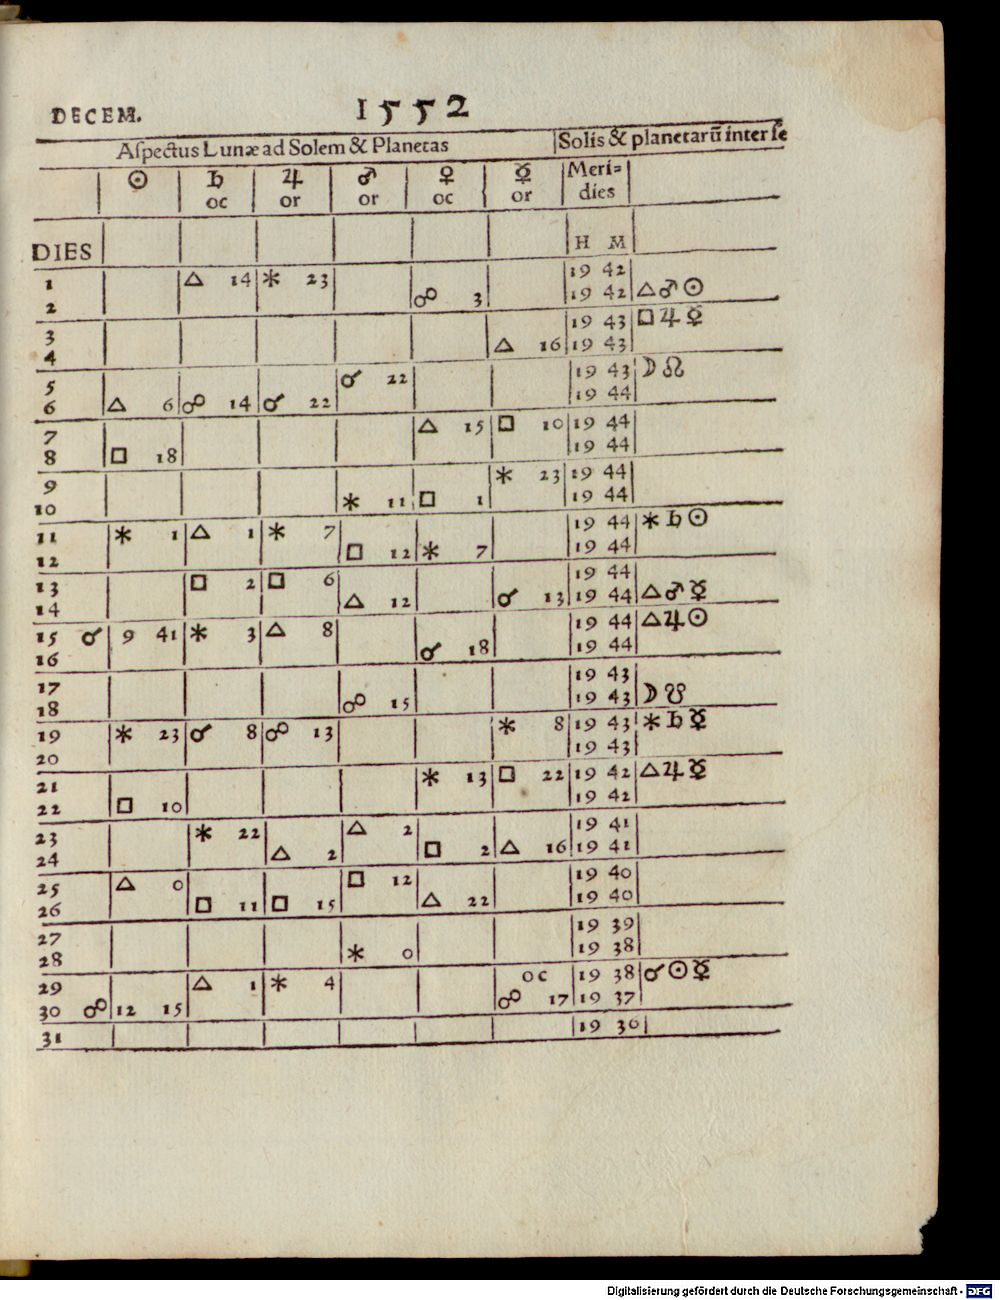 DECEM. 1552
Aſpectus Lunæ ad Solem & Planetas Solis & planetarũ inter ſe
☉ ♄ ♃ ♂ ♀ ☿ Meri=
oc or or oc or dies
DIES H M
1 △ 14 ⚹ 23 19 42
2 ☍ 3 19 42 △♂☉
3 19 43 □♃☿
4 △ 16 19 43
5 ☌ 22 19 43 ☽☊
6 △ 6 ☍ 14 ☌ 22 19 44
7 △ 15 □ 10 19 44
8 □ 18 19 44
9 ⚹ 23 19 44
10 ⚹ 11 □ 1 19 44
11 ⚹ 1 △ 1 ⚹ 7 19 44 ⚹♄☉
12 □ 12 ⚹ 7 19 44
13 □ 2 □ 6 19 44
14 △ 12 ☌ 13 19 44 △♂☿
15 ☌ 9 41 ⚹ 3 △ 8 19 44 △♃☉
16 ☌ 18 19 44
17 19 43
18 ☍ 15 19 43 ☽☋
19 ⚹ 23 ☌ 8 ☍ 13 ⚹ 8 19 43 ⚹♄☿
20 19 43
21 ⚹ 13 □ 22 19 42 △♃☿
22 □ 10 19 42
23 ⚹ 22 △ 2 19 41
24 △ 2 □ 2 △ 16 19 41
25 △ 0 □ 12 19 40
26 □ 11 □ 15 △ 22 19 40
27 19 39
28 ⚹ 0 19 38
29 △ 1 ⚹ 4 oc 19 38 ☌☉☿
30 ☍ 12 15 ☍ 17 19 37
31 19 36
Digitalisierung gefördert durch die Deutsche Forschungsgemeinschaft - DFG